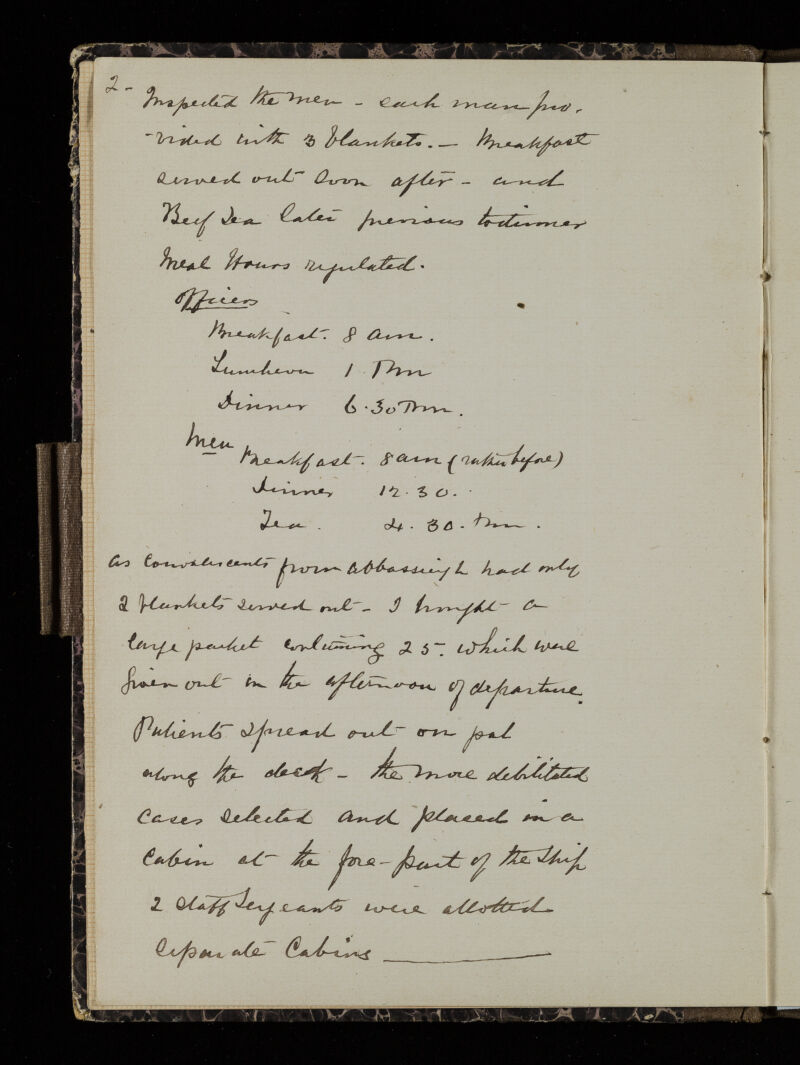 2-
Inspected the men - each man pro-
-vided with 3 blankets. - Breakfast
served out soon after - and
Beef Tea later previous to dinner
Meal Hours regulated.
Officers
Breakfast. 8 am.
Luncheon 1 Pm
Dinner 6.30 Pm.
Men
Breakfast. 8 am (rather before)
Dinner 12.30.
Tea. 4.30. Pm.
as convalescents from Abbassiyeh had only
2 blankets served out - I brought a
large packet containing 25. which were
given out in the afternoon of departure.
Patients spread out on
along the deck - the more debilitated
cases selected and placed in a
Cabin at the fore-part of the ship
2 Staff Sergeants were allotted
separate Cabins